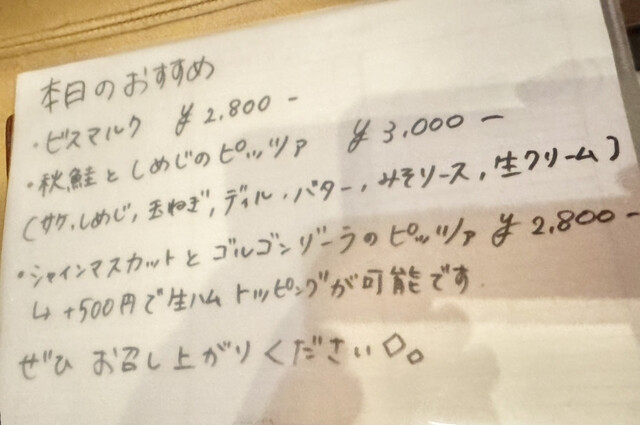 本日のおすすめ
・ビスマルク ¥2,800-
・秋鮭としめじのピッツァ ¥3,000-
(サケ,しめじ,玉ねぎ,ディル・バター,みそソース,生クリーム)
・シャインマスカットとゴルゴンゾーラのピッツァ ¥2,800-
↳+500円で生ハムトッピングが可能です.
ぜひお召し上がりください◇。